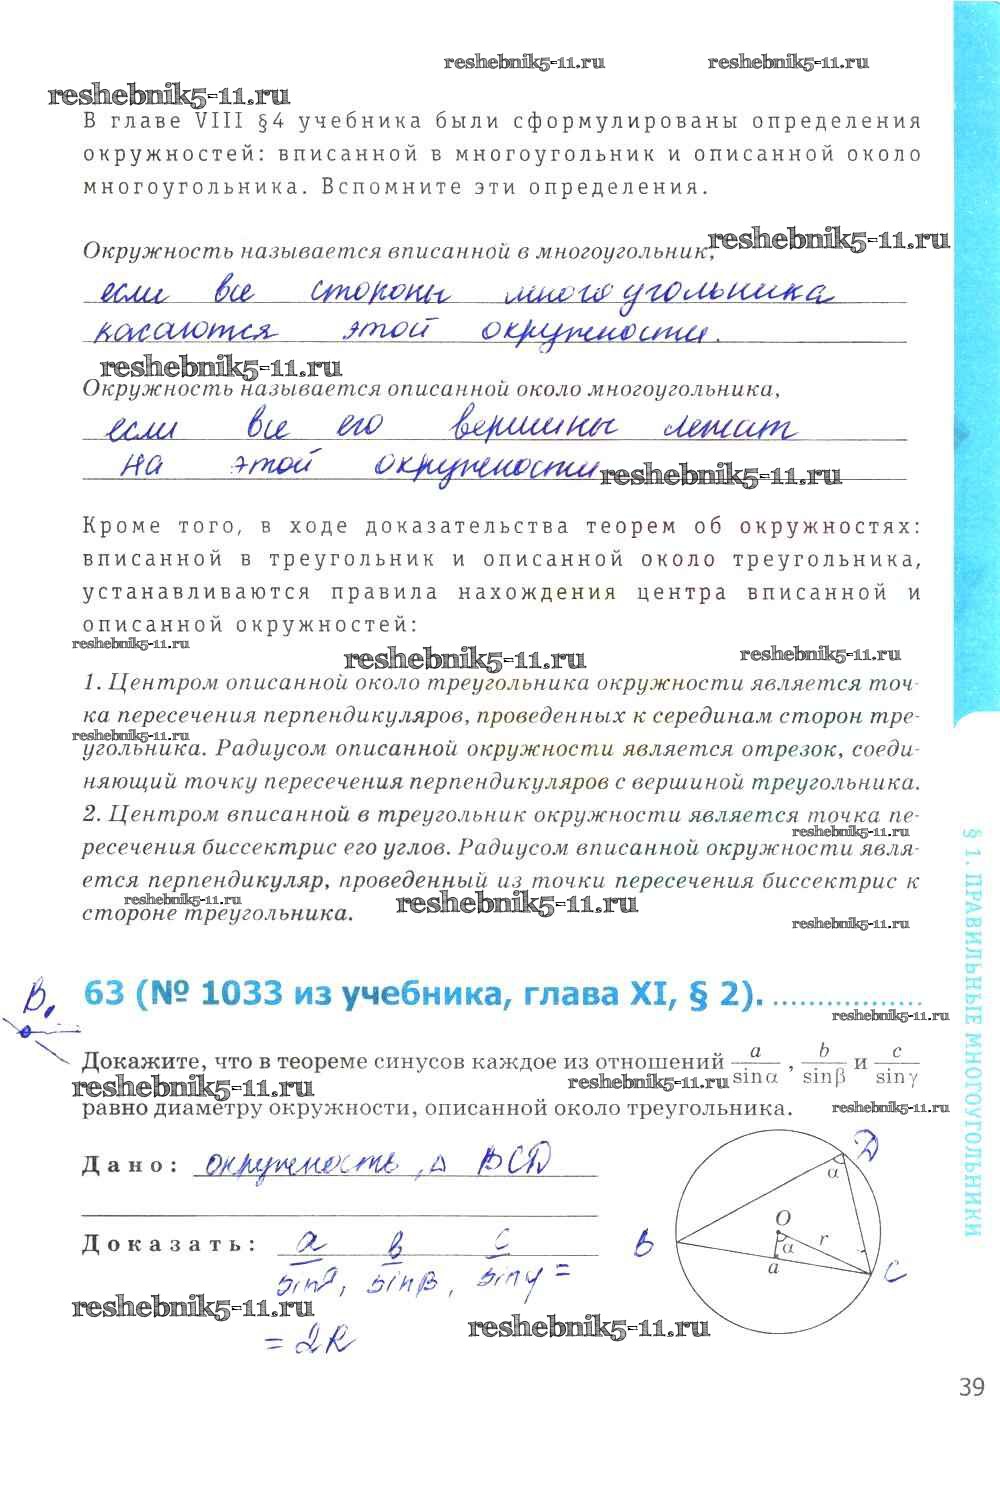 reshebnik5-11.ru reshebnik5-11.ru
reshebnik5-11.ru
В главе VIII §4 учебника были сформулированы определения
окружностей: вписанной в многоугольник и описанной около
многоугольника. Вспомните эти определения.
Окружность называется вписанной в многоугольник, reshebnik5-11.ru
если все стороны многоугольника
касаются этой окружности.
reshebnik5-11.ru
Окружность называется описанной около многоугольника,
если все его вершины лежат
на этой окружности reshebnik5-11.ru
Кроме того, в ходе доказательства теорем об окружностях:
вписанной в треугольник и описанной около треугольника,
устанавливаются правила нахождения центра вписанной и
описанной окружностей:
reshebnik5-11.ru reshebnik5-11.ru reshebnik5-11.ru
1. Центром описанной около треугольника окружности является точ-
ка пересечения перпендикуляров, проведенных к серединам сторон тре-
reshebnik5-11.ru
угольника. Радиусом описанной окружности является отрезок, соеди-
няющий точку пересечения перпендикуляров с вершиной треугольника.
2. Центром вписанной в треугольник окружности является точка пе-
reshebnik5-11.ru
ресечения биссектрис его углов. Радиусом вписанной окружности явля-
ется перпендикуляр, проведенный из точки пересечения биссектрис к
reshebnik5-11.ru reshebnik5-11.ru
стороне треугольника.
reshebnik5-11.ru
§ 1. ПРАВИЛЬНЫЕ МНОГОУГОЛЬНИКИ
63 (№ 1033 из учебника, глава XI, § 2). ..................
reshebnik5-11.ru
Докажите, что в теореме синусов каждое из отношений a/sinα , b/sinβ и c/sinγ
reshebnik5-11.ru reshebnik5-11.ru
равно диаметру окружности, описанной около треугольника. reshebnik5-11.ru
Дано: окружность, Δ BCD
Доказать: a/sinα, в/sinβ, c/sinγ =
= 2R
reshebnik5-11.ru
reshebnik5-11.ru
D
α
O
r
α
a
B
C
39